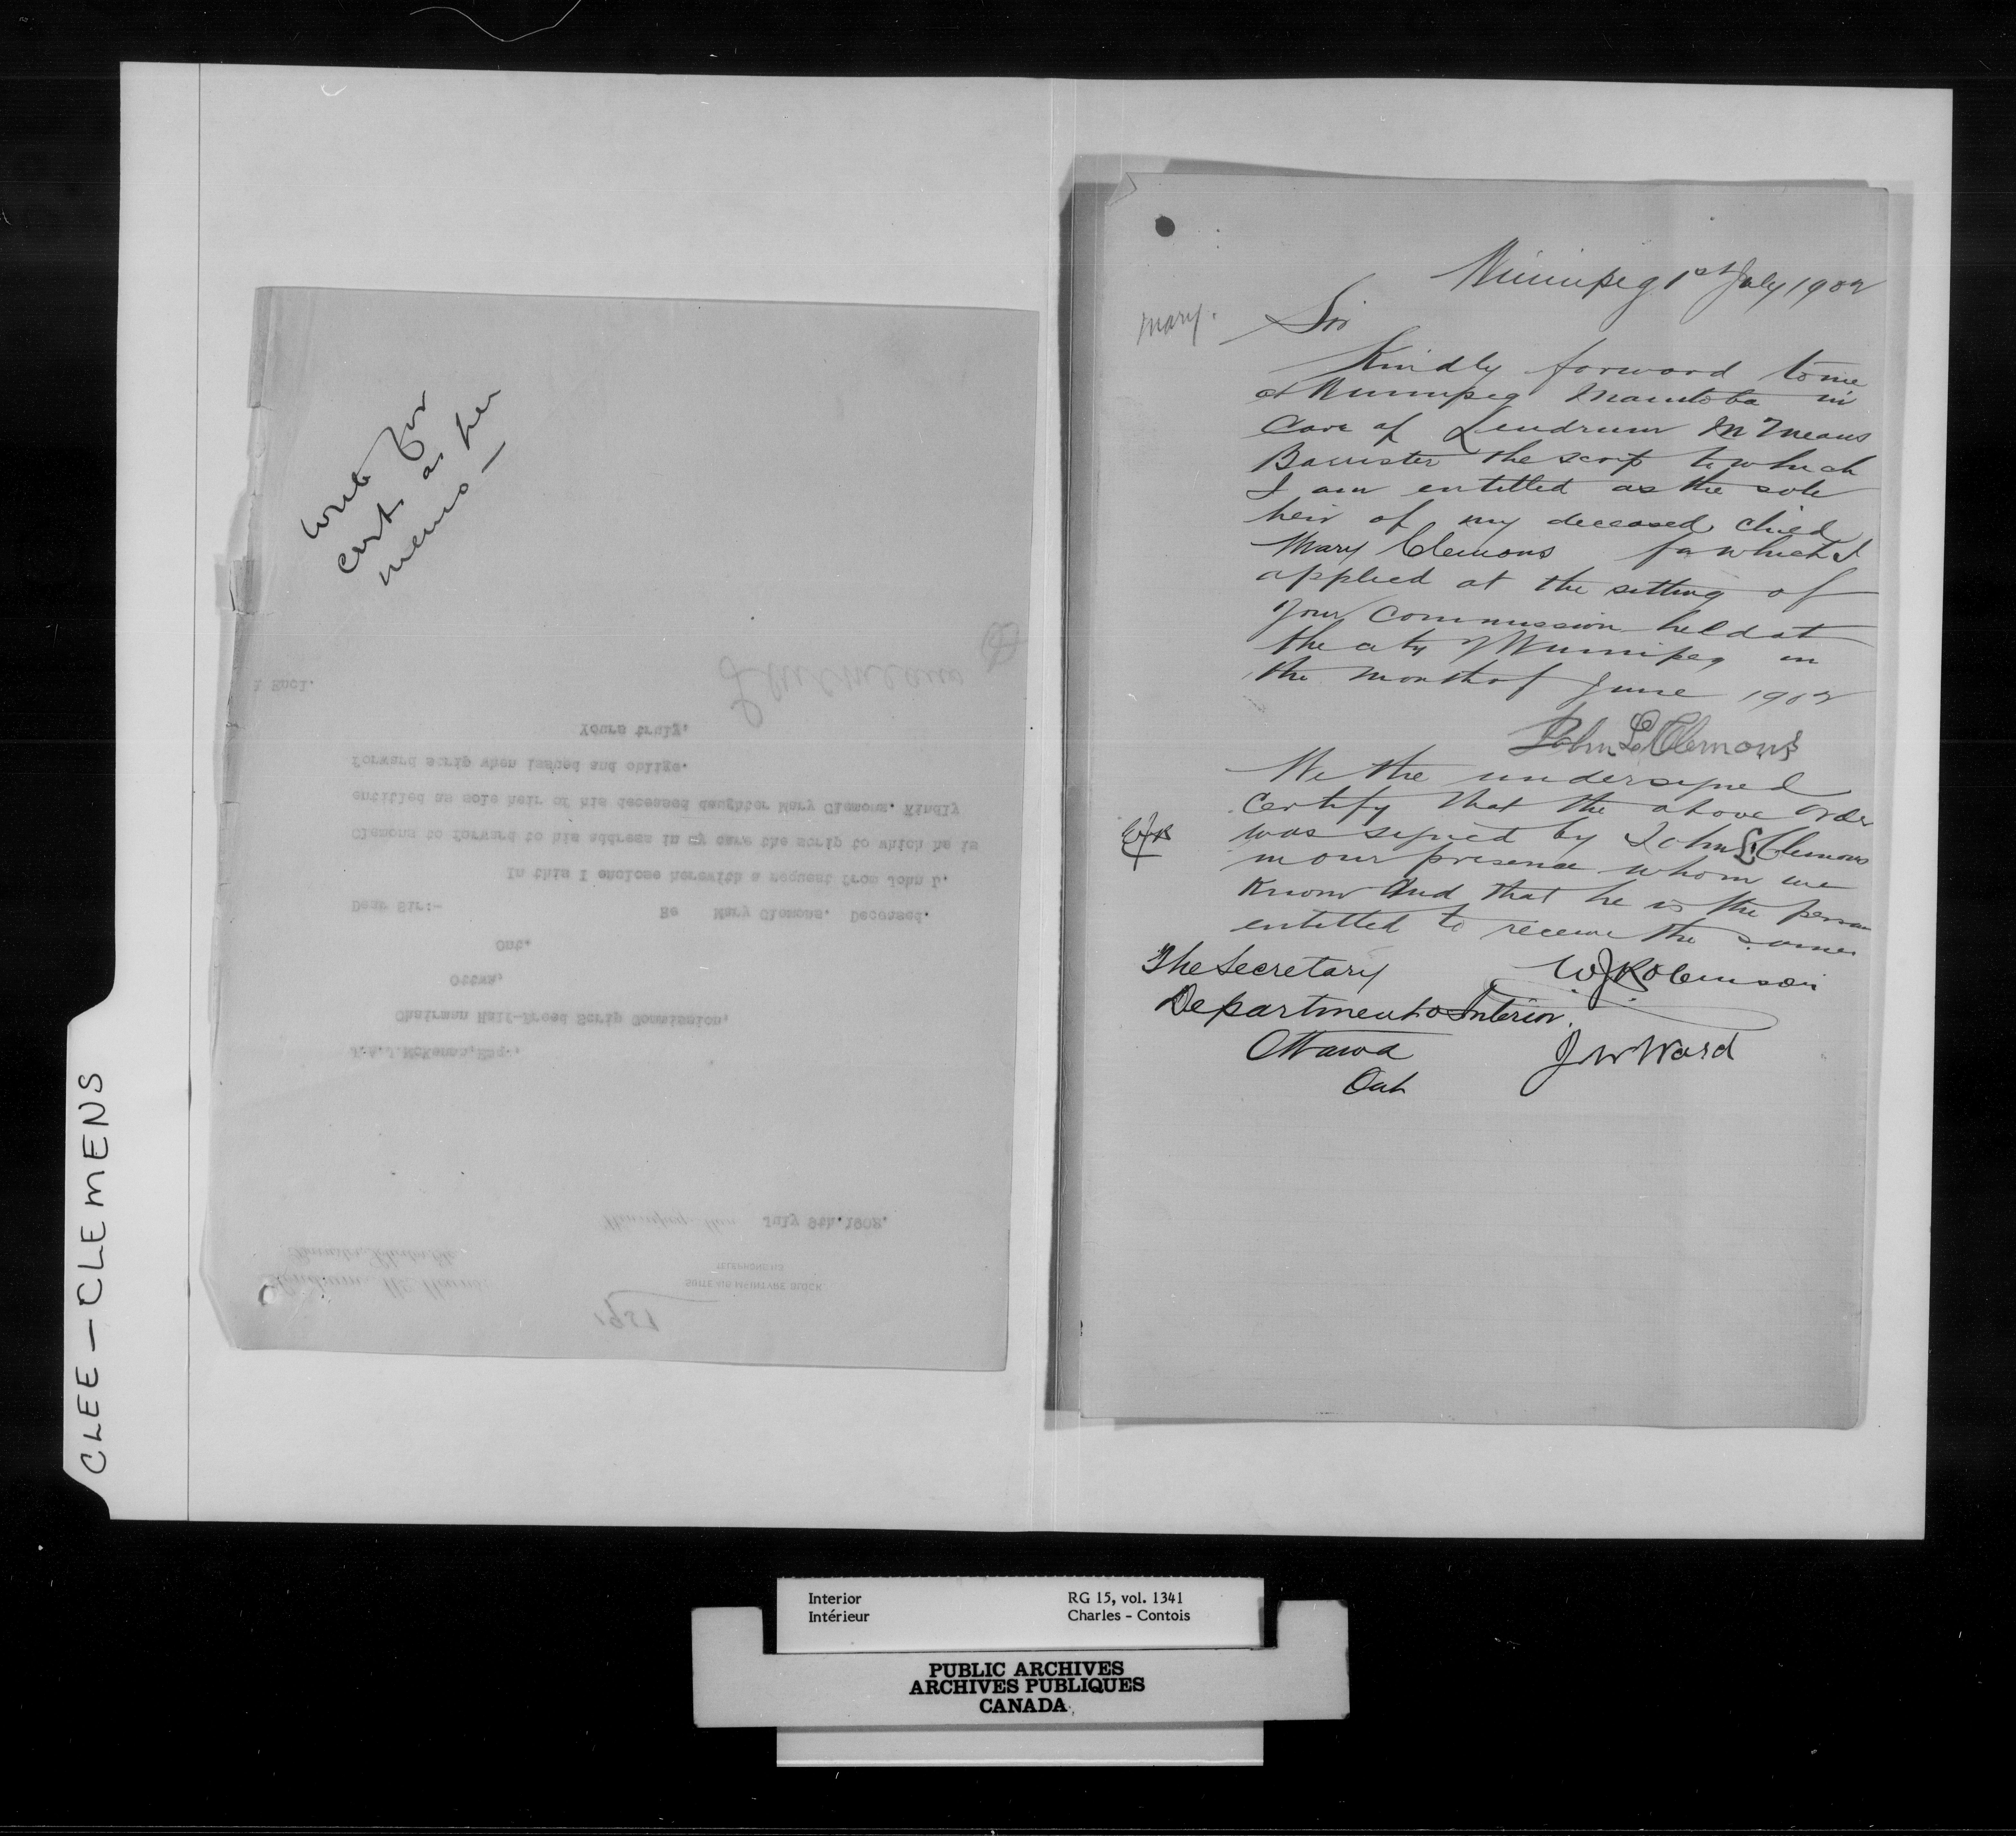 CLEE – CLEMENS
memo –
1 Encl.
Yours truly,
forward scrip when issued and oblige.
entitled as sole heir of his deceased daughter Mary Clemons. Kindly
Clemons to forward to his address in my care the scrip to which he is
In this I enclose herewith a request from John L.
Dear Sir:- Re Mary Clemons. Deceased.
Ont.
Ottwa,
Chairman Half-Breed Scrip Commission,
J.A.J.McKenna,Esq.,
Winnipeg, Man July 9th.1902.
Barrister, Solicitor Etc
TELEPHONE
Lendrum Mc Means
McINTYRE BLOCK
SUITE
Winnipeg 1st July 1902
Mary.
Sir
Kindly forward to me
at Winnipeg Manitoba in
Care of Lendrum McMeans
Barrister the scrip to which
I am entitled as the sole
heir of my deceased child
Mary Clemons for which I
applied at the sitting of
your Commission held at
the city of Winnipeg in
the month of June 1902
John L Clemons
We the undersigned
certify that the above order
was signed by John L Clemons
in our presence whom we
know and that he is the person
entitled to receive the same
The Secretary
W J Robinson
Department of Interior.
Ottawa
J W Ward
Ont
Interior RG 15, vol. 1341
Intérieur Charles - Contois
PUBLIC ARCHIVES
ARCHIVES PUBLIQUES
CANADA